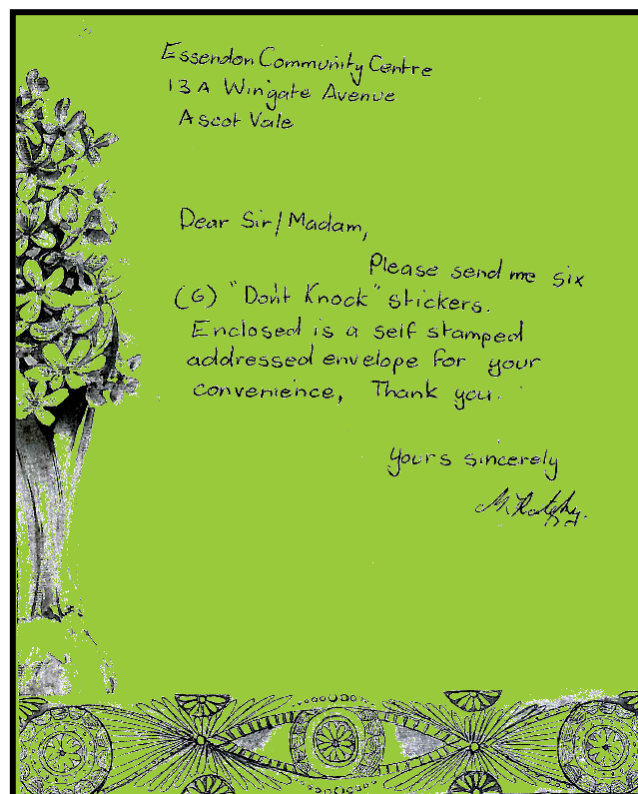 Essendon Community Centre
13A Wingate Avenue
Ascot Vale
Dear Sir/Madam,
Please send me six
(6) "Don't Knock" stickers.
Enclosed is a self stamped
addressed envelope for your
convenience, Thank you.
Yours sincerely
M.